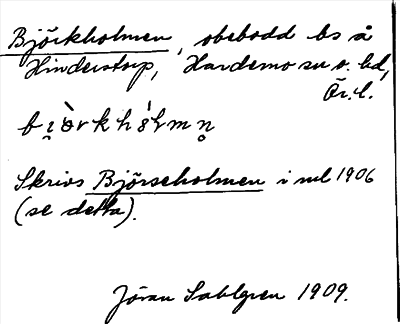 Björkholmen, obebodd bs å
Hinderstorp, Hardemo sn o. hd,
Ör. l.
bi̯òrkhólmn̥
Skrivs Björseholmen i ml 1906
(se detta).
Jöran Sahlgren 1909.